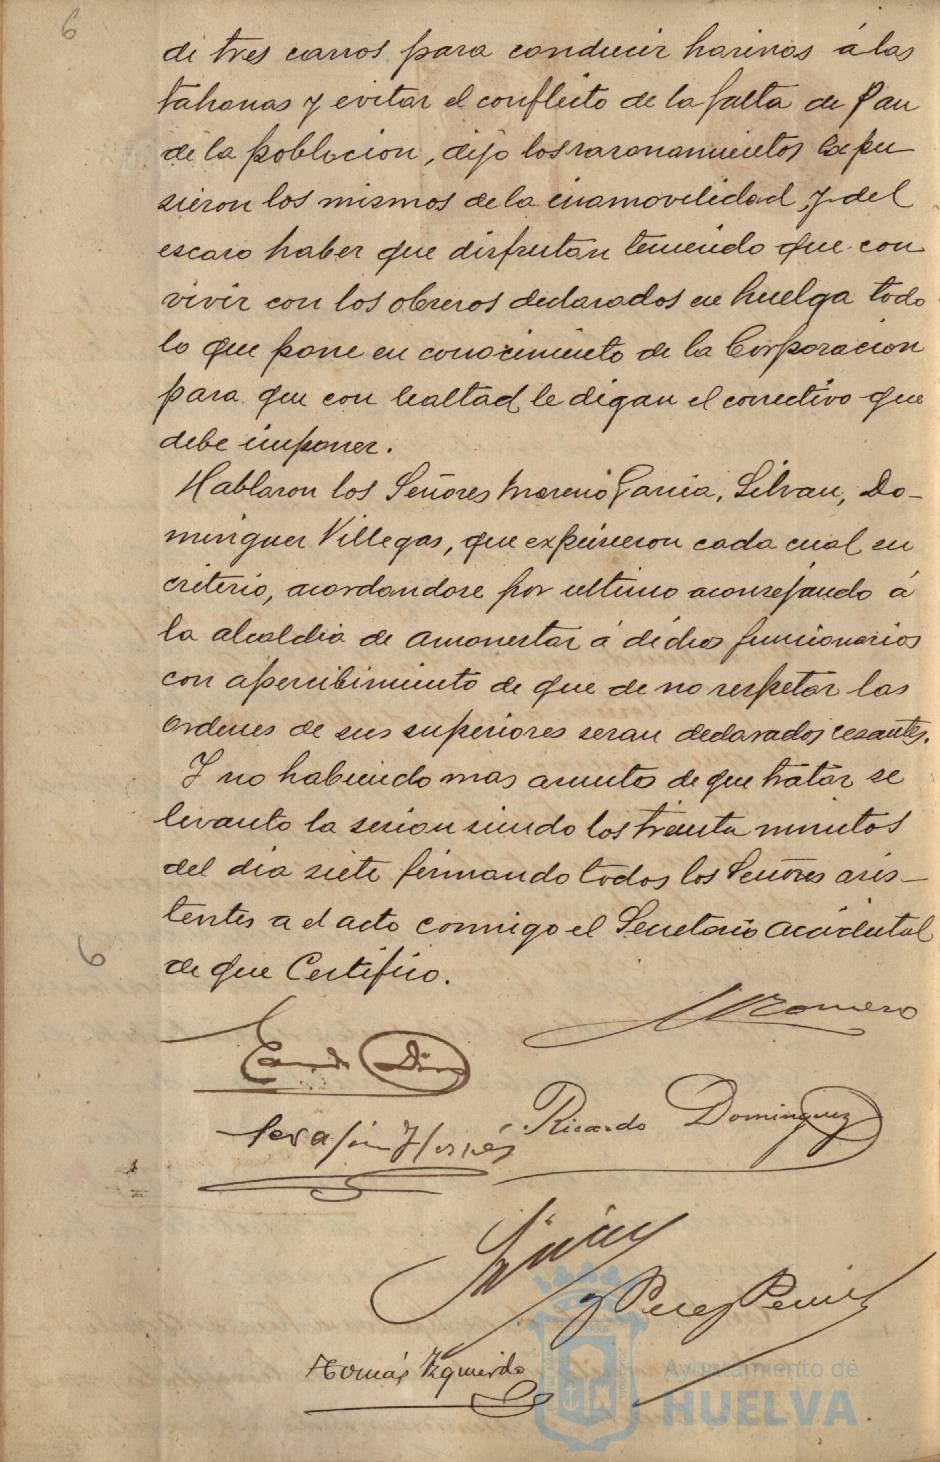 6
de tres carros para conducir harinas á las
tahonas y evitar el conflicto de la falta de Pan
de la poblacion, dijo los razonamientos Expu
sieron los mismos de la inamovilidad, y del
escaso haber que disfrutan teniendo que con
vivir con los obreros declarados en huelga todo
lo que pone en conocimiento de la Corporacion
para que con lealtad le digan el correctivo que
debe imponer.
Hablaron los Señores Moreno Garcia, Silvan, Do-
minguez Villegas, que expusieron cada cual su
criterio, acordandose por ultimo aconsejando á
la alcaldia de amonestar á dichos funcionarios
con apercibimiento de que de no respetar las
ordenes de sus superiores seran declarados cesantes.
Y no habiendo mas asuntos de que tratar se
levanto la sesion siendo los treinta minutos
del dia siete firmando todos los Señores asis-
tentes a el acto conmigo el Secretario accidental
de que Certifico.
6
Romero
Diaz
Ricardo Dominguez
Serafin
y Perez
Tomás Izquierdo
Ayuntamiento de
HUELVA